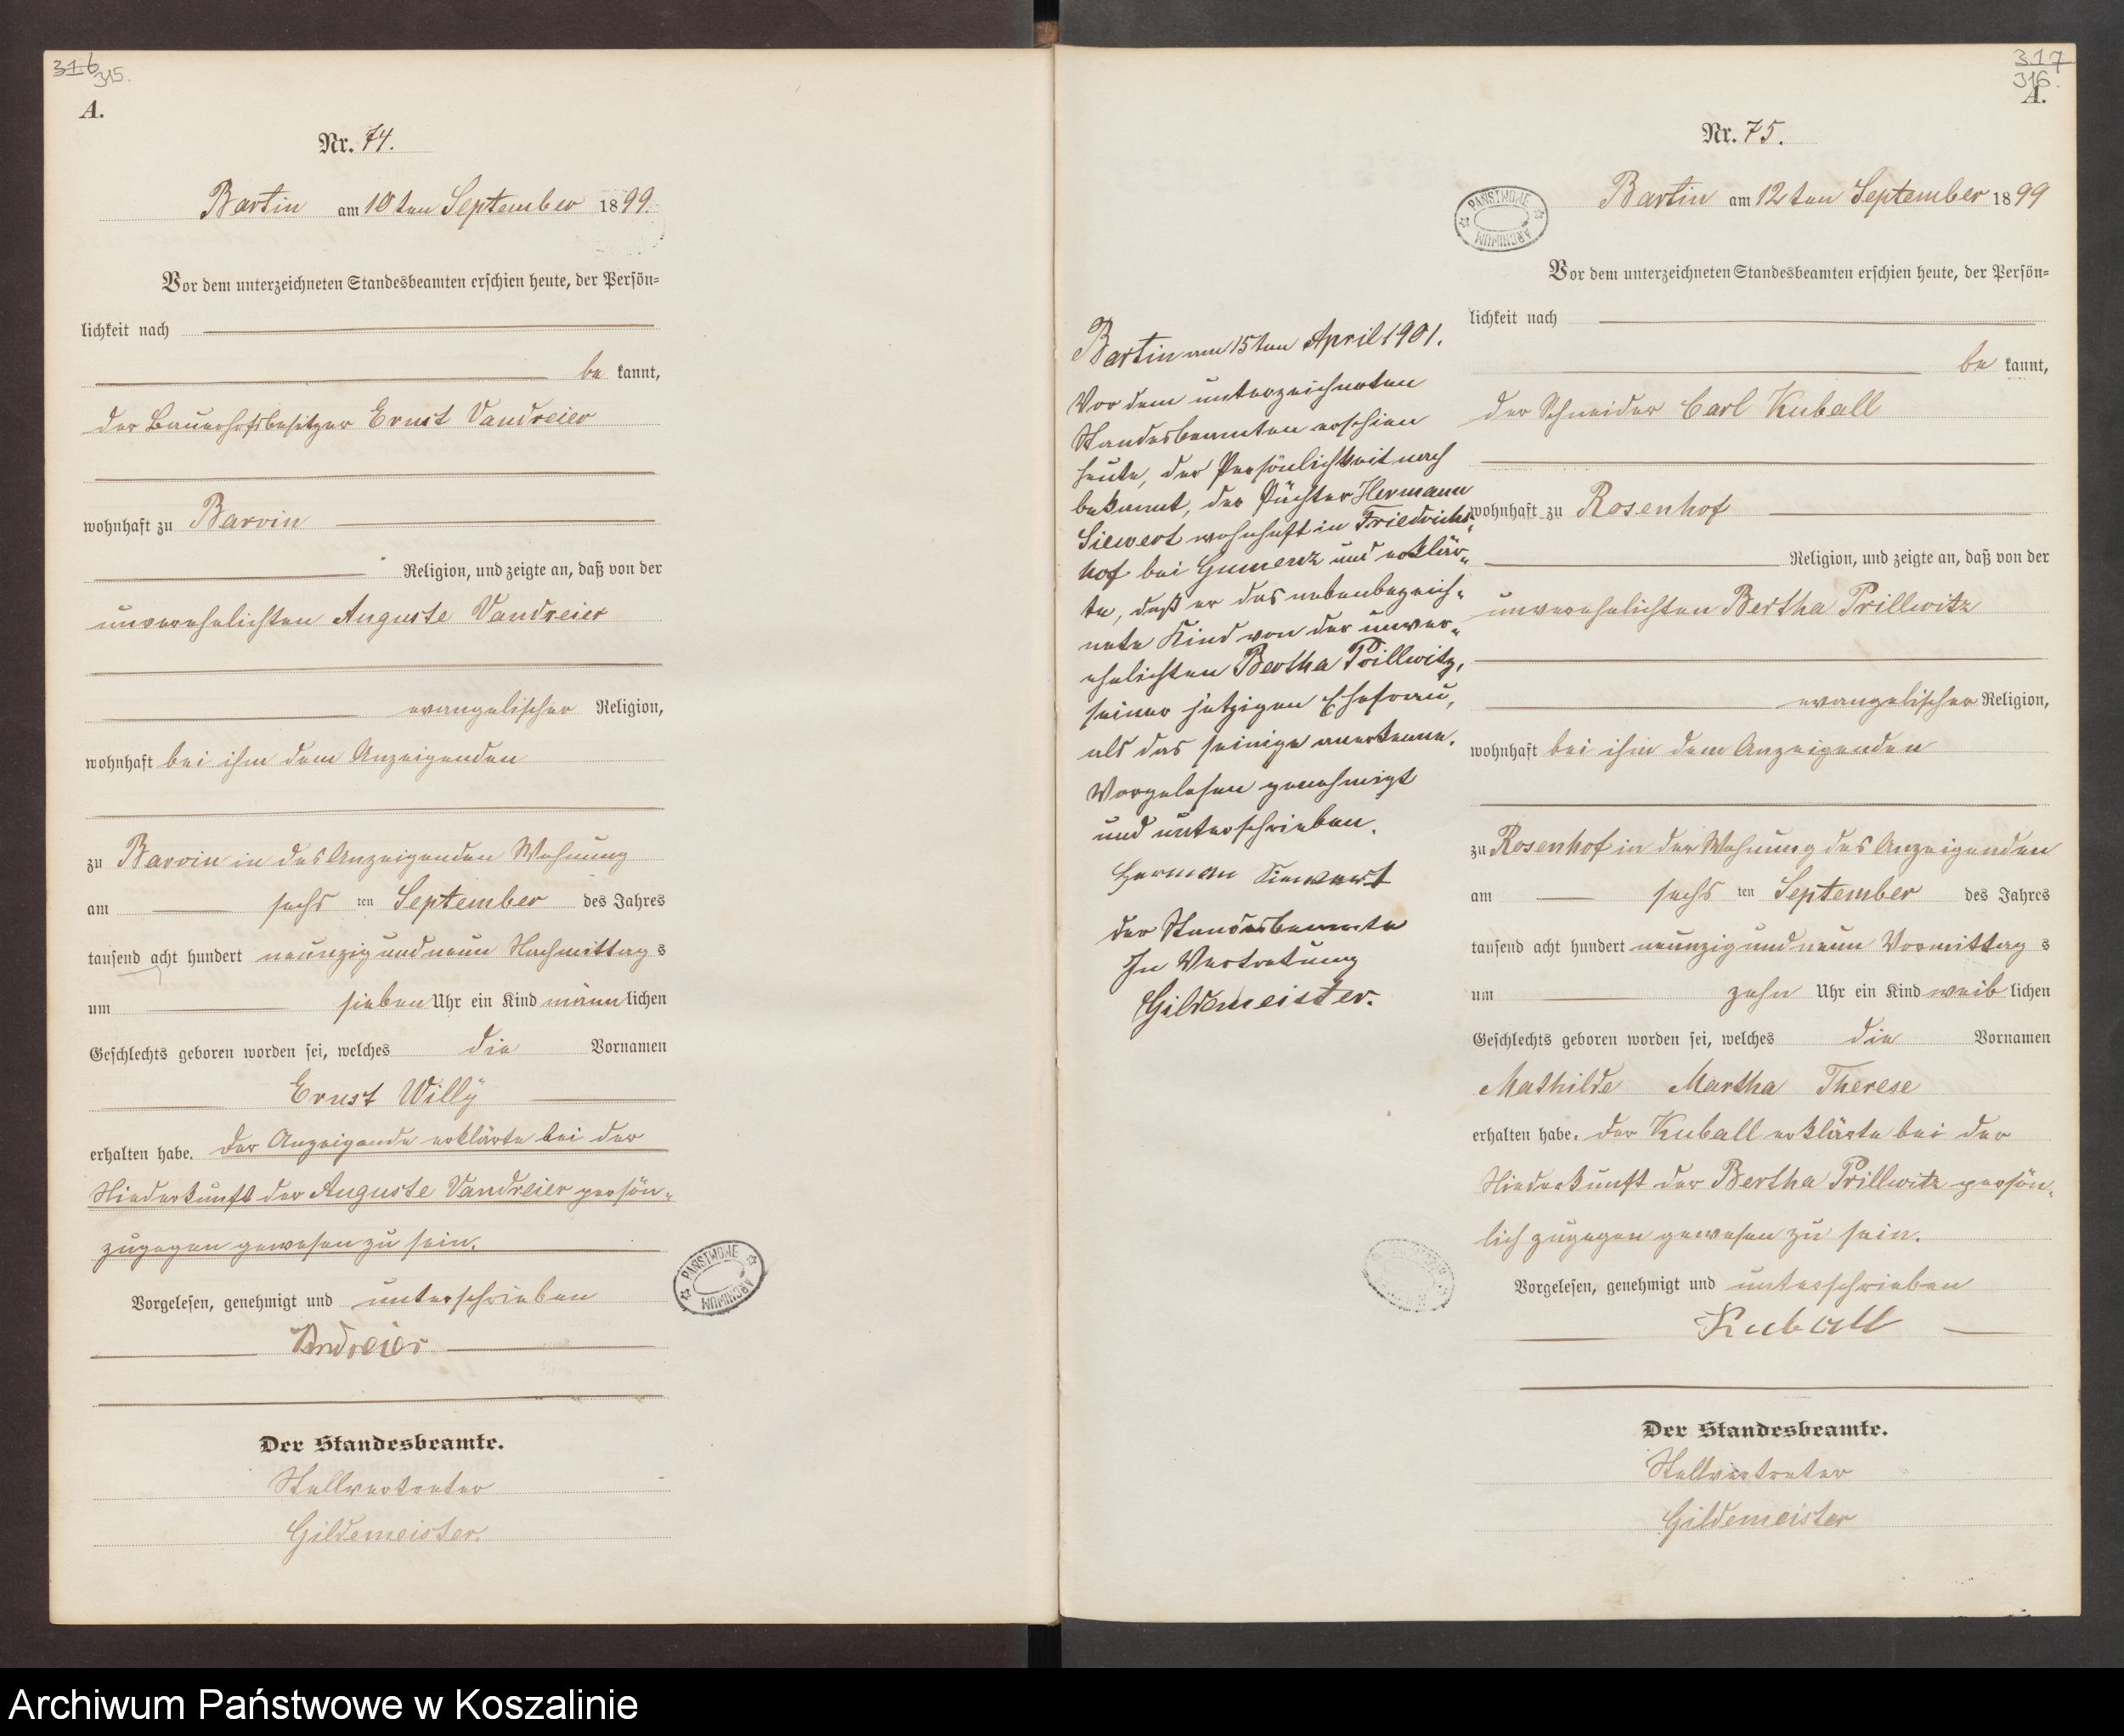 316
315.
A.
Nr. 74.
Bartin am 10ten September 1899.
Vor dem unterzeichneten Standesbeamten erschien heute, der Persön=
lichkeit nach
be kannt,
der Bauerhofsbesitzer Ernst Vandreier
wohnhaft zu Barvin
Religion, und zeigte an, daß von der
unverehelichten Auguste Vandreier
evangelischer Religion,
wohnhaft bei ihm dem Anzeigenden
zu Barvin in des Anzeigenden Wohnung
am sechs ten September des Jahres
tausend acht hundert neunzig und neun Nachmittag s
um sieben Uhr ein Kind männ lichen
Geschlechts geboren worden sei, welches die Vornamen
Ernst Willy
erhalten habe. Der Anzeigende erklärte bei der
Niederkunft der Auguste Vandreier persön-
zugegen gewesen zu sein.
Vorgelesen, genehmigt und unterschrieben
Vandreier
Der Standesbeamte.
Stellvertreter
Gildemeister.
PAŃSTWOWE
ARCHIWUM
317
316.
A.
Nr. 75.
Bartin am 12ten September 1899
PAŃSTWOWE
ARCHIWUM
Vor dem unterzeichneten Standesbeamten erschien heute, der Persön=
lichkeit nach
be kannt,
der Schneider Carl Kuball
wohnhaft zu Rosenhof
Religion, und zeigte an, daß von der
unverehelichten Bertha Prillwitz
evangelischer Religion,
wohnhaft bei ihm dem Anzeigenden
zu Rosenhof in der Wohnung des Anzeigenden
am sechs ten September des Jahres
tausend acht hundert neunzig und neun Vormittag s
um zehn Uhr ein Kind weib lichen
Geschlechts geboren worden sei, welches die Vornamen
Mathilde Martha Therese
erhalten habe. Der Kuball erklärte bei der
Niederkunft der Bertha Prillwitz persön-
lich zugegen gewesen zu sein.
Vorgelesen, genehmigt und unterschrieben
Kuball
Der Standesbeamte.
Stellvertreter
Gildemeister
Bartin am 15ten April 1901.
Vor dem unterzeichneten
Standesbeamten erschien
heute, der Persönlichkeit nach
bekannt, der Pächter Hermann
Siewert wohnhaft in Friedrichs-
hof bei Gumenz und erklär-
te, daß er das nebenbezeich-
nete Kind von der unver-
ehelichten Bertha Prillwitz,
seiner jetzigen Ehefrau,
als das seinige anerkenne.
Vorgelesen genehmigt
und unterschrieben.
Herman Siewert
der Standesbeamte
In Vertretung
Gildemeister.
Archiwum Państwowe w Koszalinie